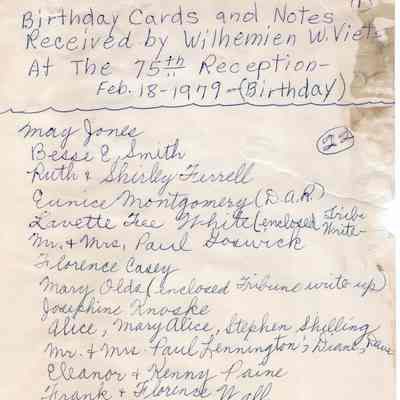 Birthday Cards and Notes
Received by Wilhemien W. Viets
At The 75th Reception-
Feb. 18-1979-(Birthday)
22
May Jones
Besse E. Smith
Ruth & Shirley Ferrell
Eunice Montgomery (D.A.R.)
Lavette Fee White (enclosed Tribune
Write-
Mr. & Mrs. Paul Goswick
Florence Casey
Mary Olds (enclosed Tribune write up)
Josephine Knoske
Alice, Mary Alice, Stephen Shilling
Mr. & Mrs. Paul Lennington's Diane,
Eleanor & Kenny Paine
Frank & Florence Wall